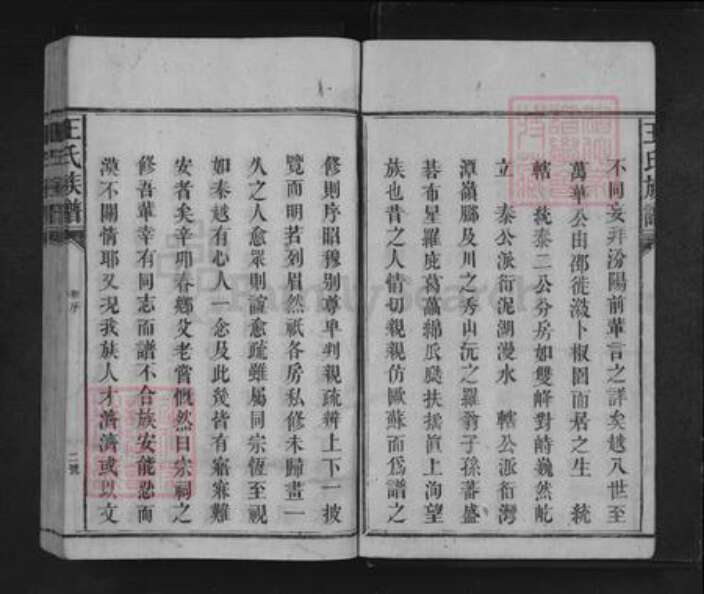 王氏族譜
不同妄拜汾陽前輩言之詳矣越八世至
萬華公由邵徙溆卜椒園而居之生 統
轄 統泰二公分房如雙峰對峙巍然屹
立 泰公派衍泥湖漫水 轄公派衍灣
潭嶺腳及川之秀山沅之羅翁子孫蕃盛
碁布星羅庇葛藟綿瓜瓞扶搖直上洵望
族也昔之人情切親親仿歐蘇而為譜之
修則序昭穆別尊卑判親疏辨上下一披
覽而明若列眉然祇各房私修未歸畫一
久之人愈眾則誼愈疏雖屬同宗恆至視
如秦越有心人一念及此殳皆有寤寐難
安者矣辛卯春鄉父老嘗慨然曰宗祠之
修吾輩幸有同志而譜不合族安能恝而
漠不關情耶又況我族人才濟濟或以文
王氏族譜
序
二號
FamilySearch